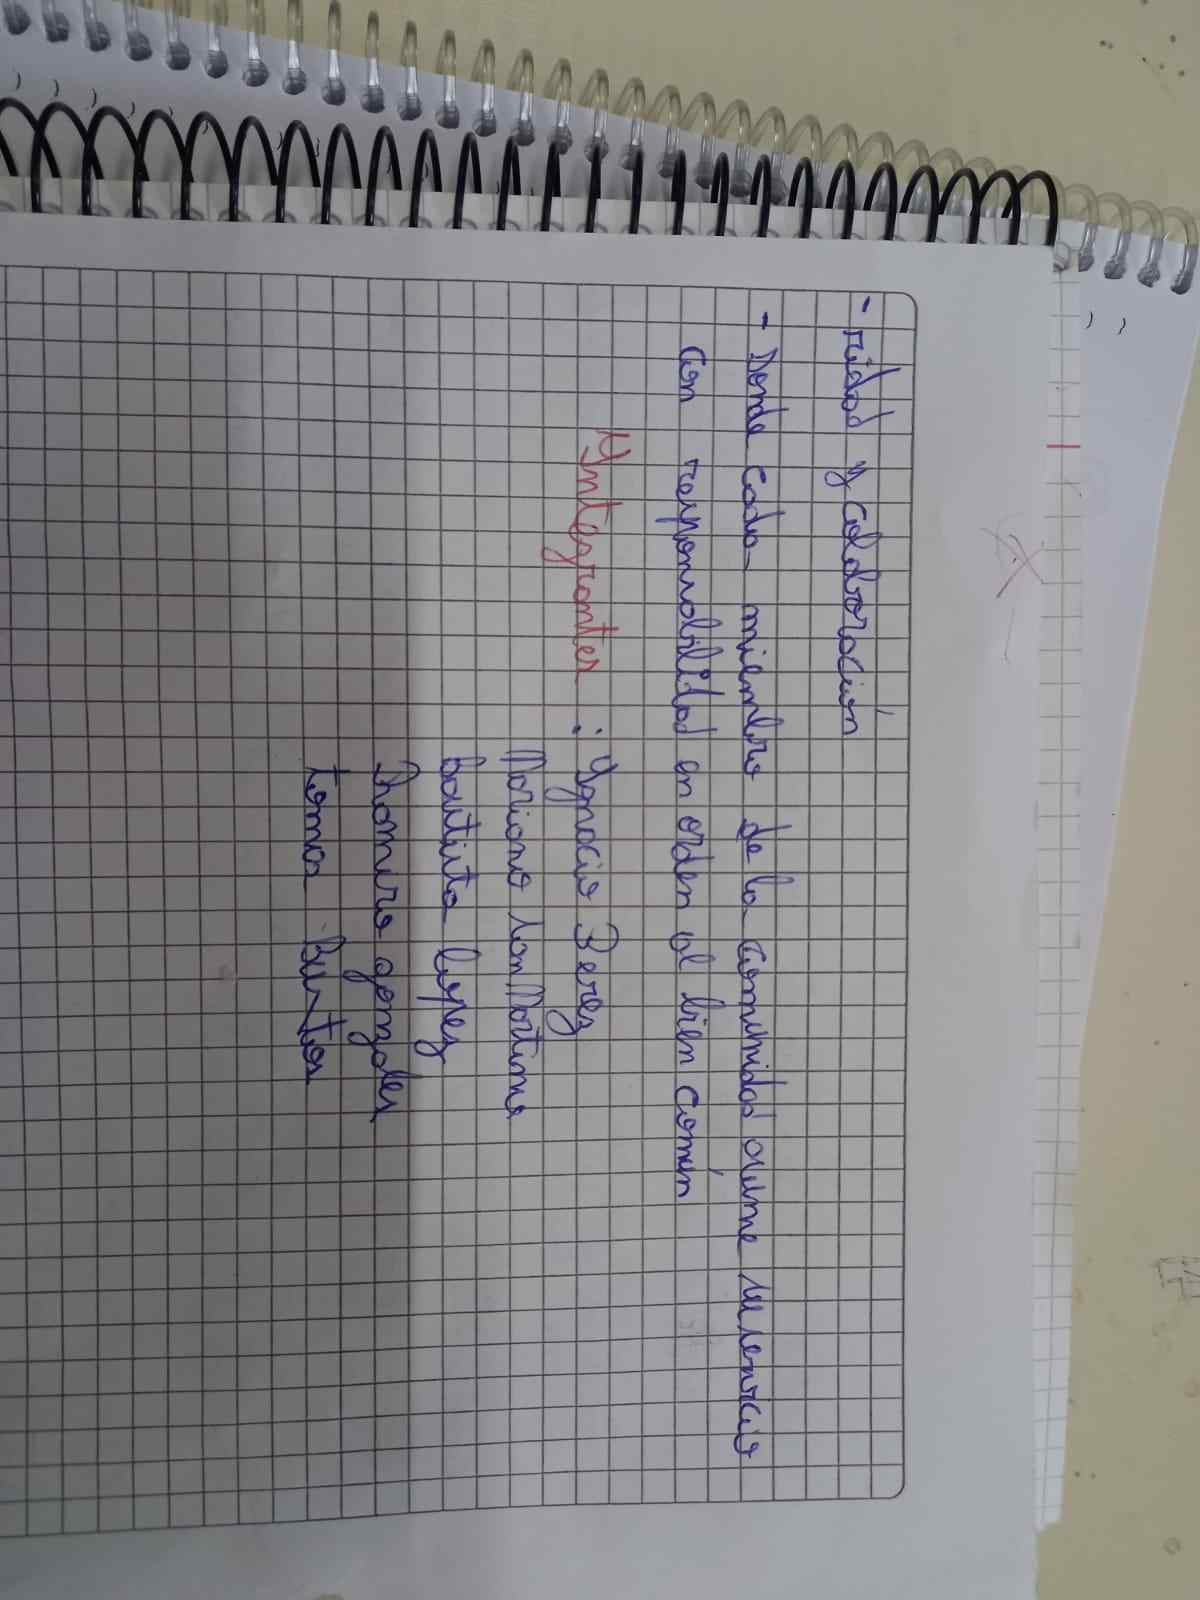 - ridad y colaboración
- Donde cada miembro de la comunidad asume su servicio
con responsabilidad en orden al bien común
Integrantes : Ygnacio Perez
Mariano San Martino
Bautista lopez
Thomiro gonzales
tomas Bustos